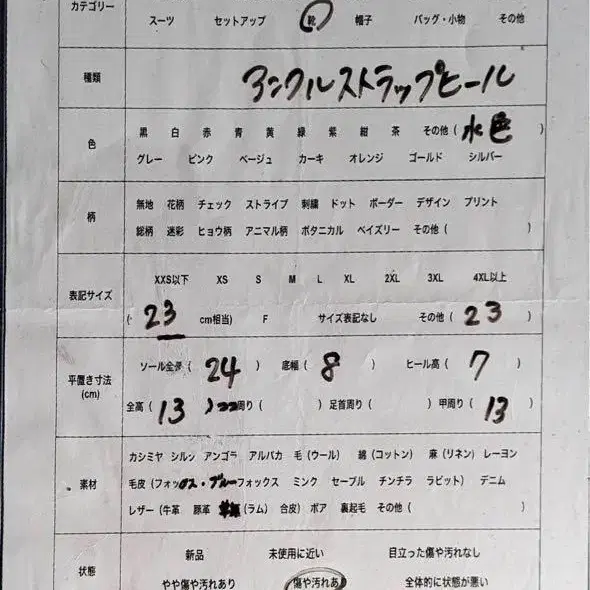 カテゴリー
スーツ セットアップ 靴 帽子 バッグ・小物 その他
種類 アンクルストラップヒール
色
黒 白 赤 青 黄 緑 紫 紺 茶 その他 ( 水色 )
グレー ピンク ベージュ カーキ オレンジ ゴールド シルバー
柄
無地 花柄 チェック ストライプ 刺繍 ドット ボーダー デザイン プリント
総柄 迷彩 ヒョウ柄 アニマル柄 ボタニカル ペイズリー その他 ( )
表記サイズ
XXS以下 XS S M L XL 2XL 3XL 4XL以上
( 23 cm相当) F サイズ表記なし その他 ( 23 )
平置き寸法
(cm)
ソール全長 ( 24 ) 底幅 ( 8 ) ヒール高 ( 7 )
全高 ( 13 ) 周り ( ) 足首周り ( ) 甲周り ( 13 )
素材
カシミヤ シルク アンゴラ アルパカ 毛 (ウール) 綿 (コットン) 麻 (リネン) レーヨン
毛皮 (フォックス・ブルーフォックス ミンク セーブル チンチラ ラビット) デニム
レザー (牛革 豚革 (ラム) 合皮) ボア 裏起毛 その他 ( )
状態
新品 未使用に近い 目立った傷や汚れなし
やや傷や汚れあり 傷や汚れあり 全体的に状態が悪い